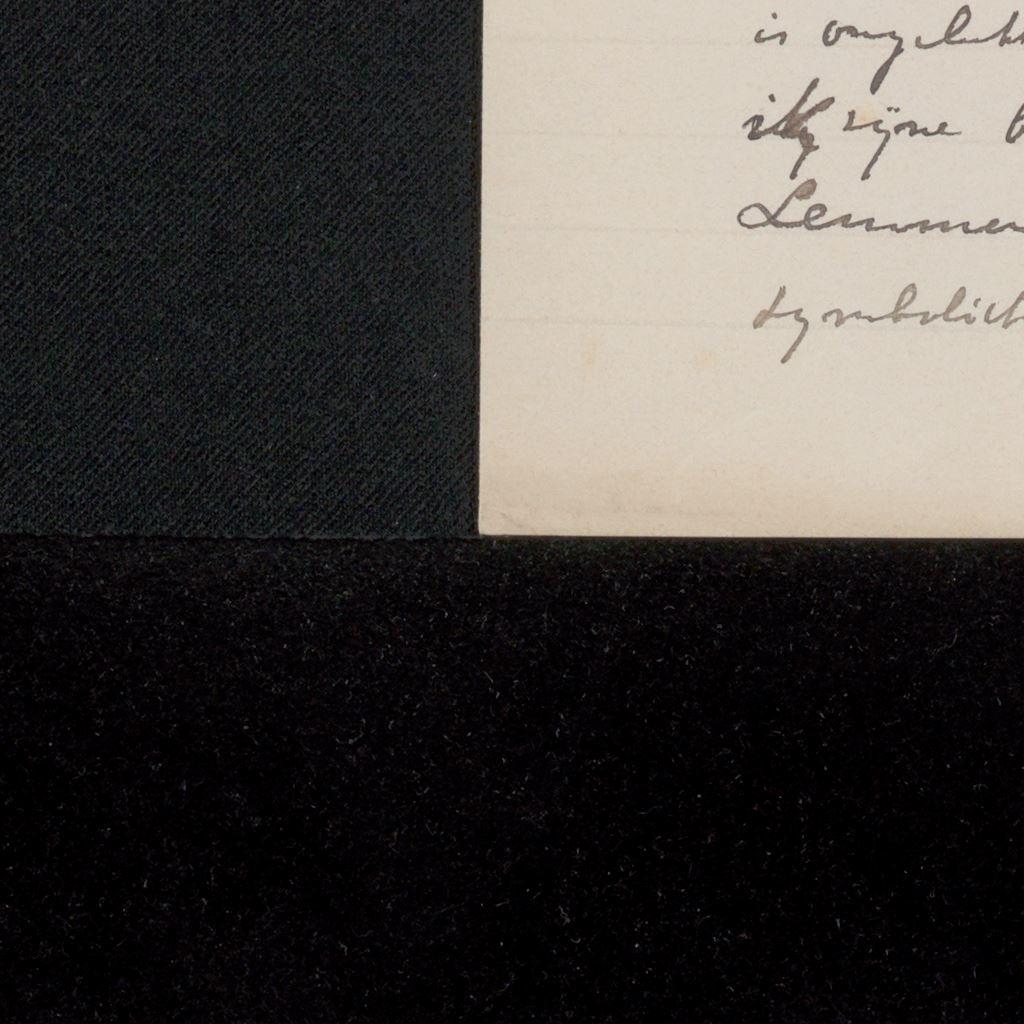 is ongelukk
zijne
Lemmen
symbolisch